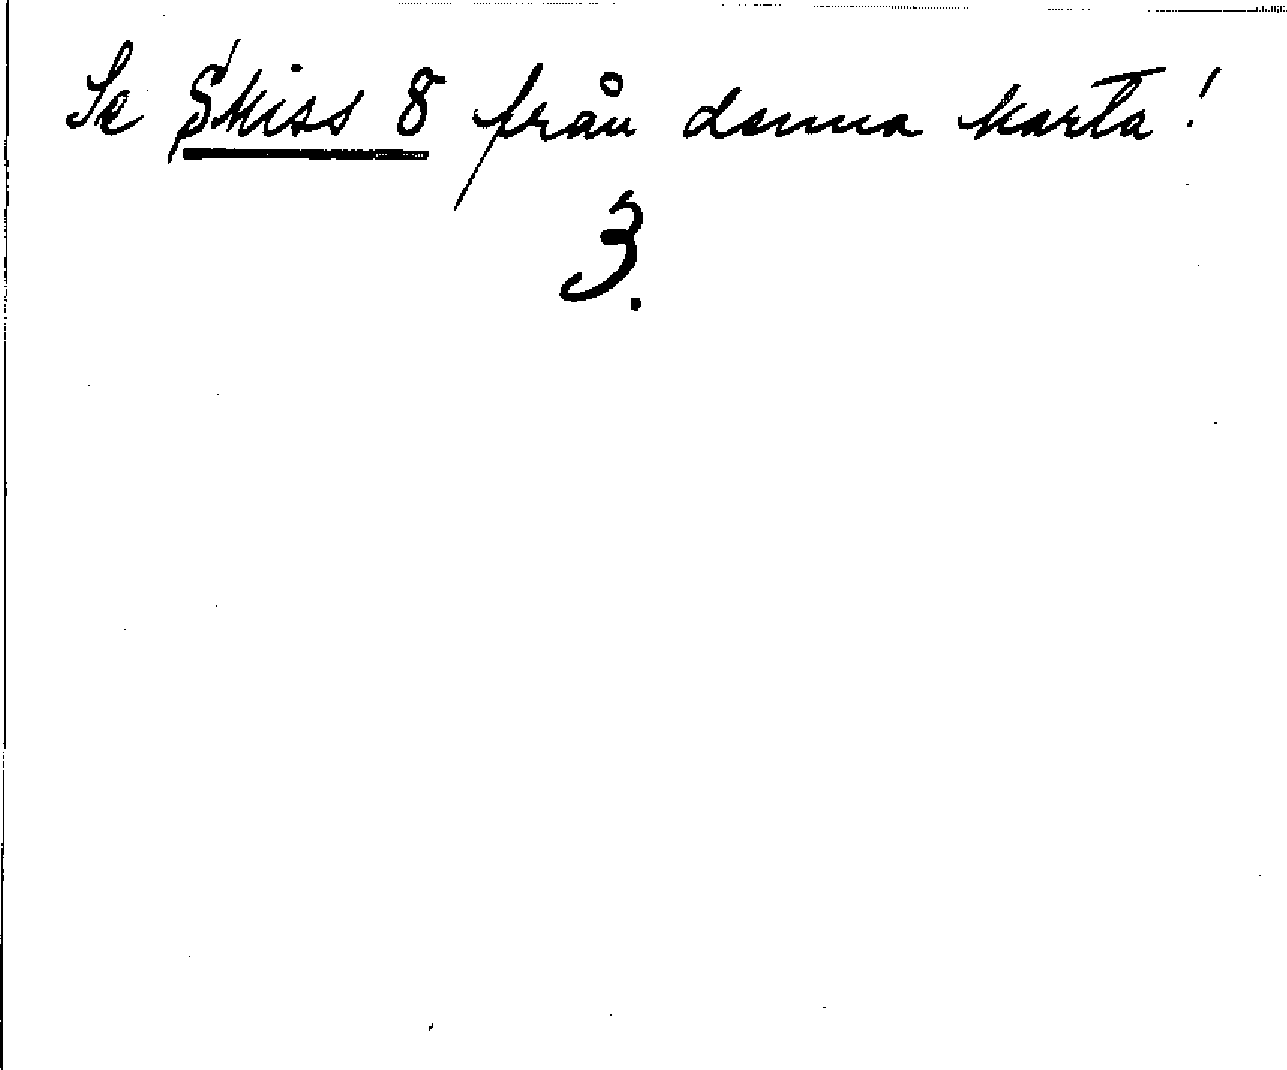 Se Skiss 8 från denna karta!
3.